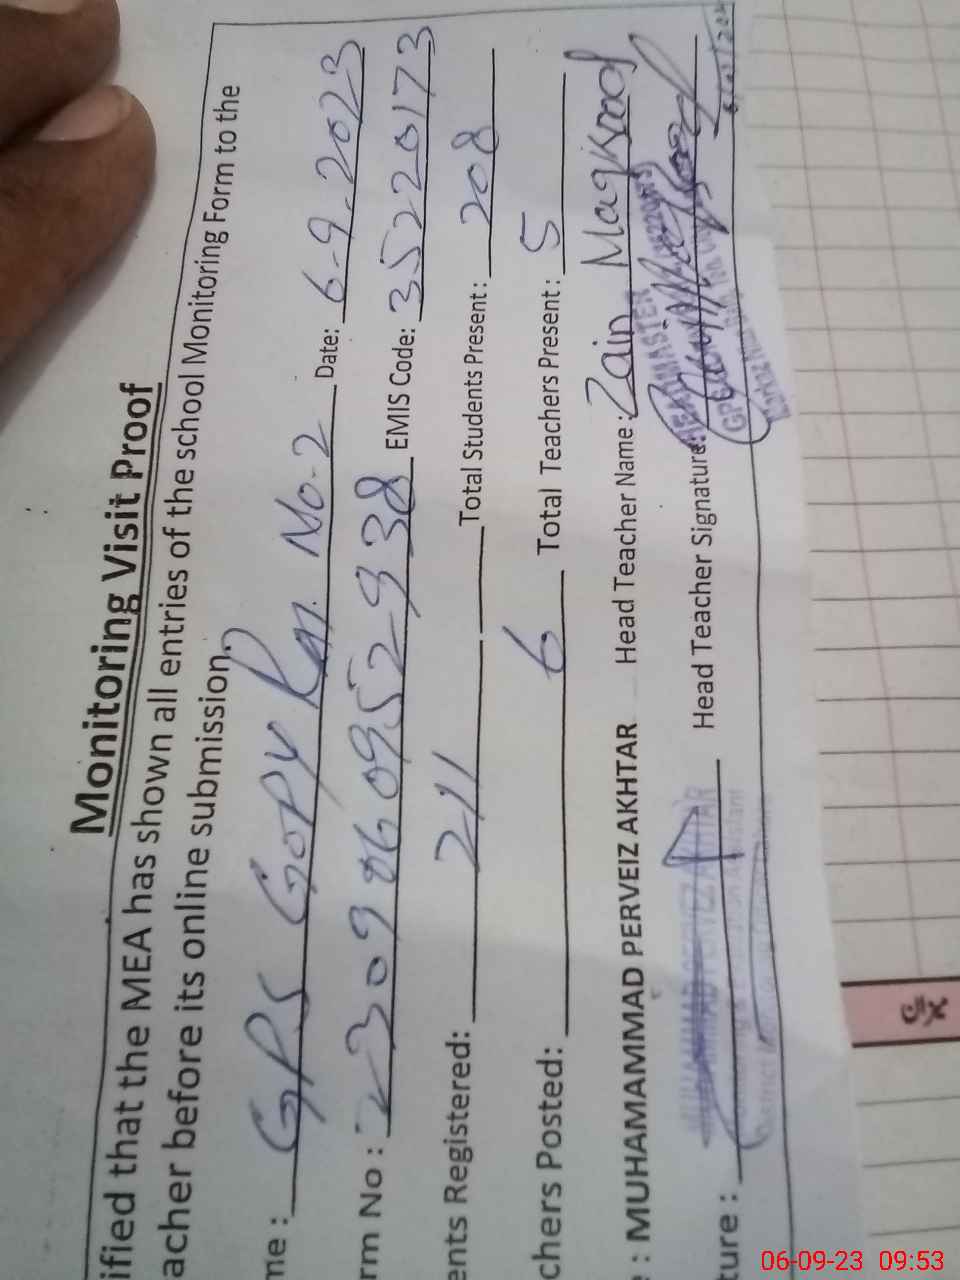 Monitoring Visit Proof
ified that the MEA has shown all entries of the school Monitoring Form to the
acher before its online submission.
me : GPS GOPY No. 2 Date: 6-9-2023
rm No : 2309060952938 EMIS Code: 35220173
ents Registered: 211 Total Students Present: 208
chers Posted: 6 Total Teachers Present: 5
: MUHAMAMMAD PERVEIZ AKHTAR Head Teacher Name: Zain Maqsood
ture : Head Teacher Signature:
MUHAMMAD PERVEZ AKHTAR
HEADMASTER
06-09-23 09:53